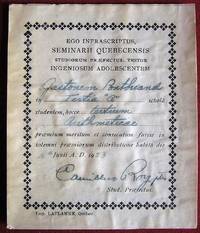 EGO INFRASCRIPTUS,
SEMINARII QUEBECENSIS
STUDIORUM PRÆFECTUS, TESTOR
INGENIOSUM ADOLESCENTEM
Gastonem
in Tertia B scholâ
studentem, hocce tertium
Arithmeticae
præmium meritum et consecutum fuisse in
solemni præmiorum distributione habitâ die
Junii A. D. 19
Camillus Roy, pter
Stud. Præfectus.
Imp. LAFLAMME, Québec.